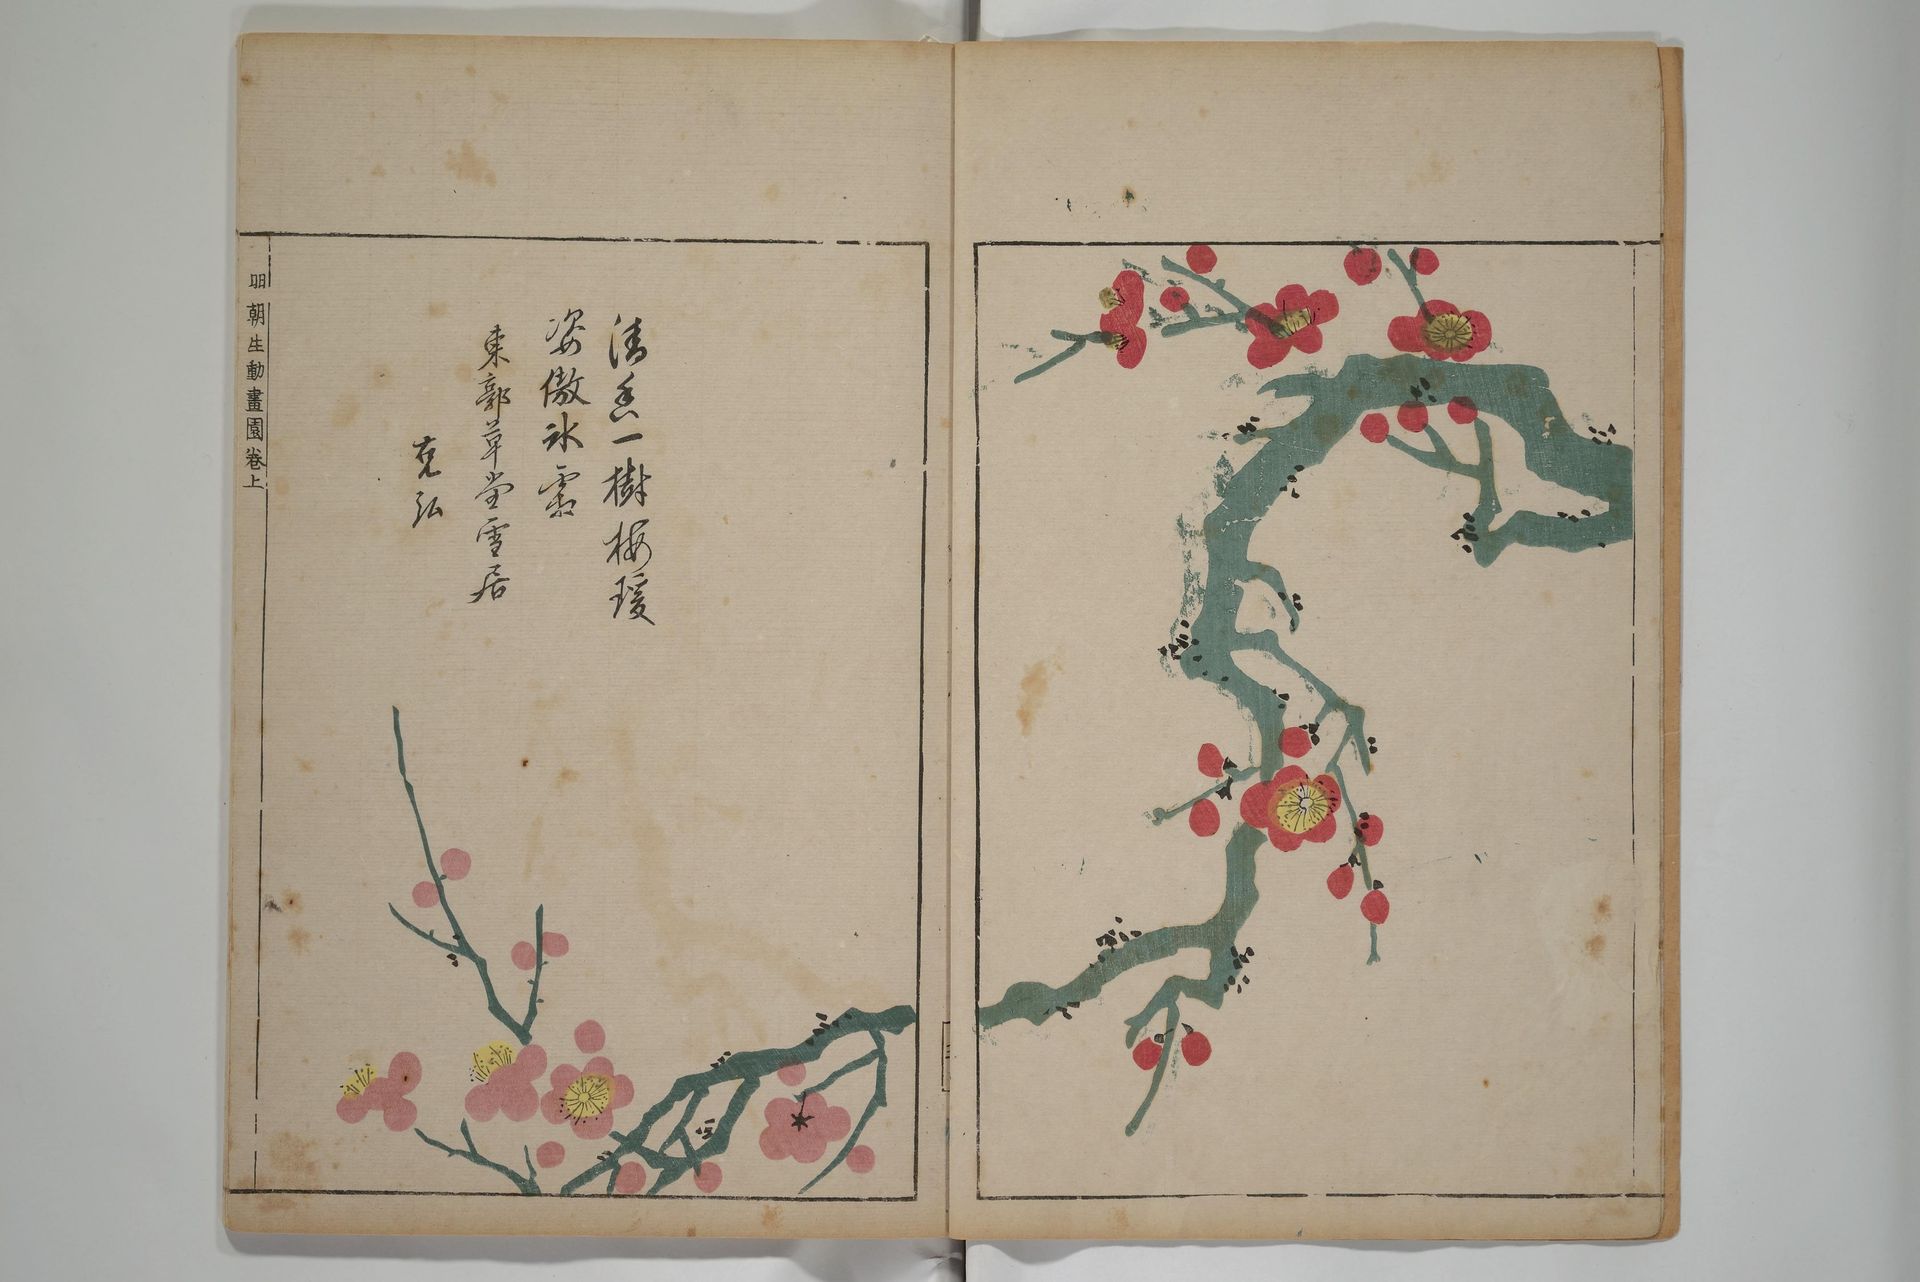 清香一樹梅瑗
姿傲氷霜
東郭草堂雪居
克弘
明朝生動畫園卷上